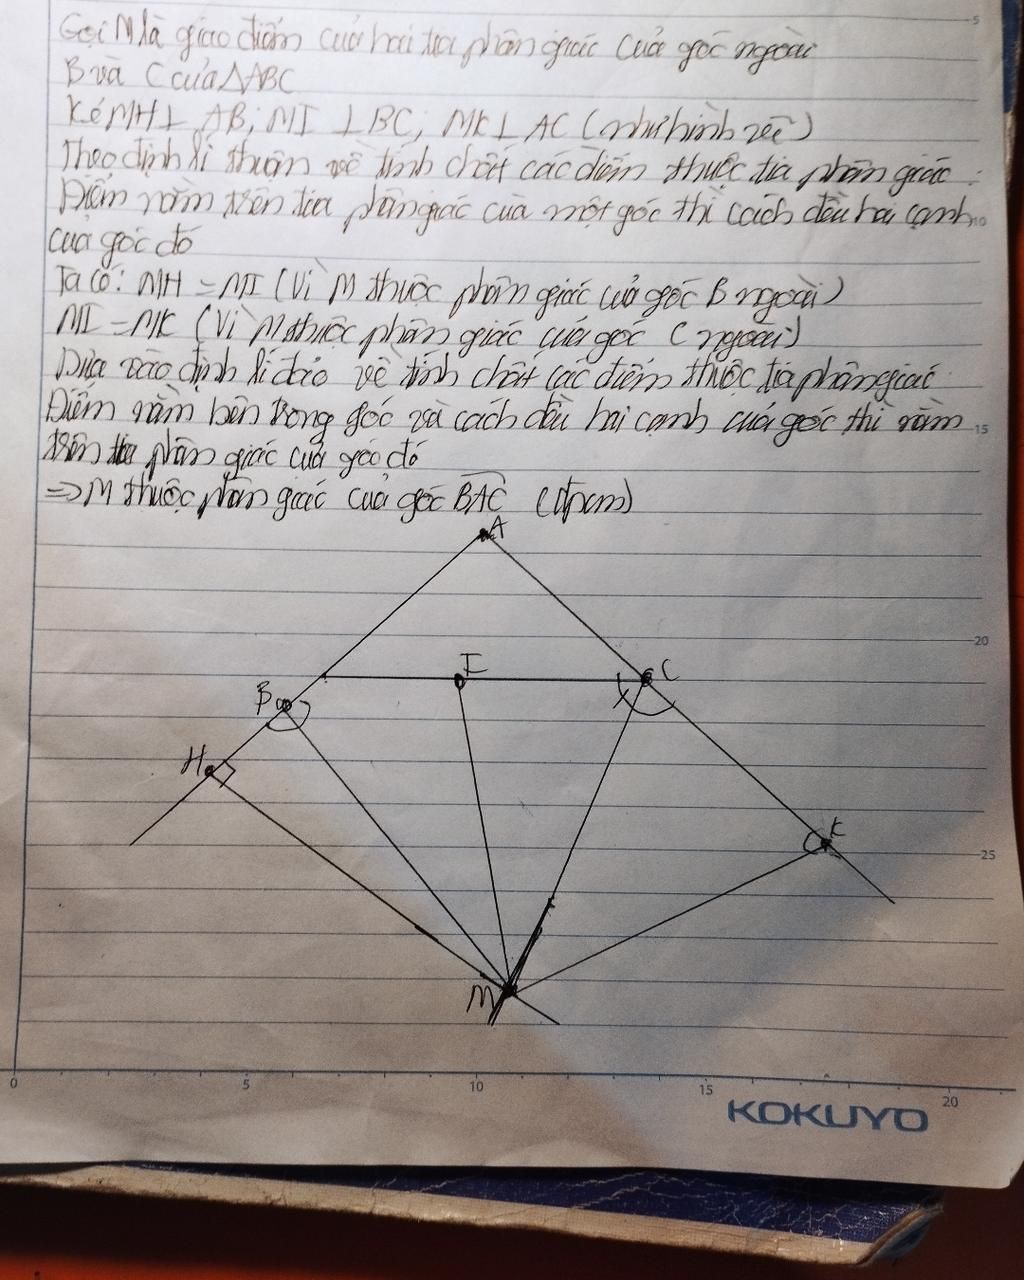 Gọi M là giao điểm của hai tia phân giác của góc ngoài
B và C của △ABC
Kẻ MH⊥ AB; MI ⊥BC; MK⊥ AC (như hình vẽ)
Theo định lí thuận về tính chất các điểm thuộc tia phân giác:
Điểm nằm trên tia phân giác của một góc thì cách đều hai cạnh
của góc đó
Ta có: MH = MI (Vì M thuộc phân giác của góc B ngoài)
MI = MK (Vì M thuộc phân giác của góc C ngoài)
Dựa vào định lí đảo về tính chất các điểm thuộc tia phân giác
Điểm nằm bên trong góc và cách đều hai cạnh của góc thì nằm
trên tia phân giác của góc đó
=> M thuộc phân giác của góc BAC (đpcm)
A
I
C
B
H
K
M
5
10
15
20
25
0 5 10 15 20
KOKUYO